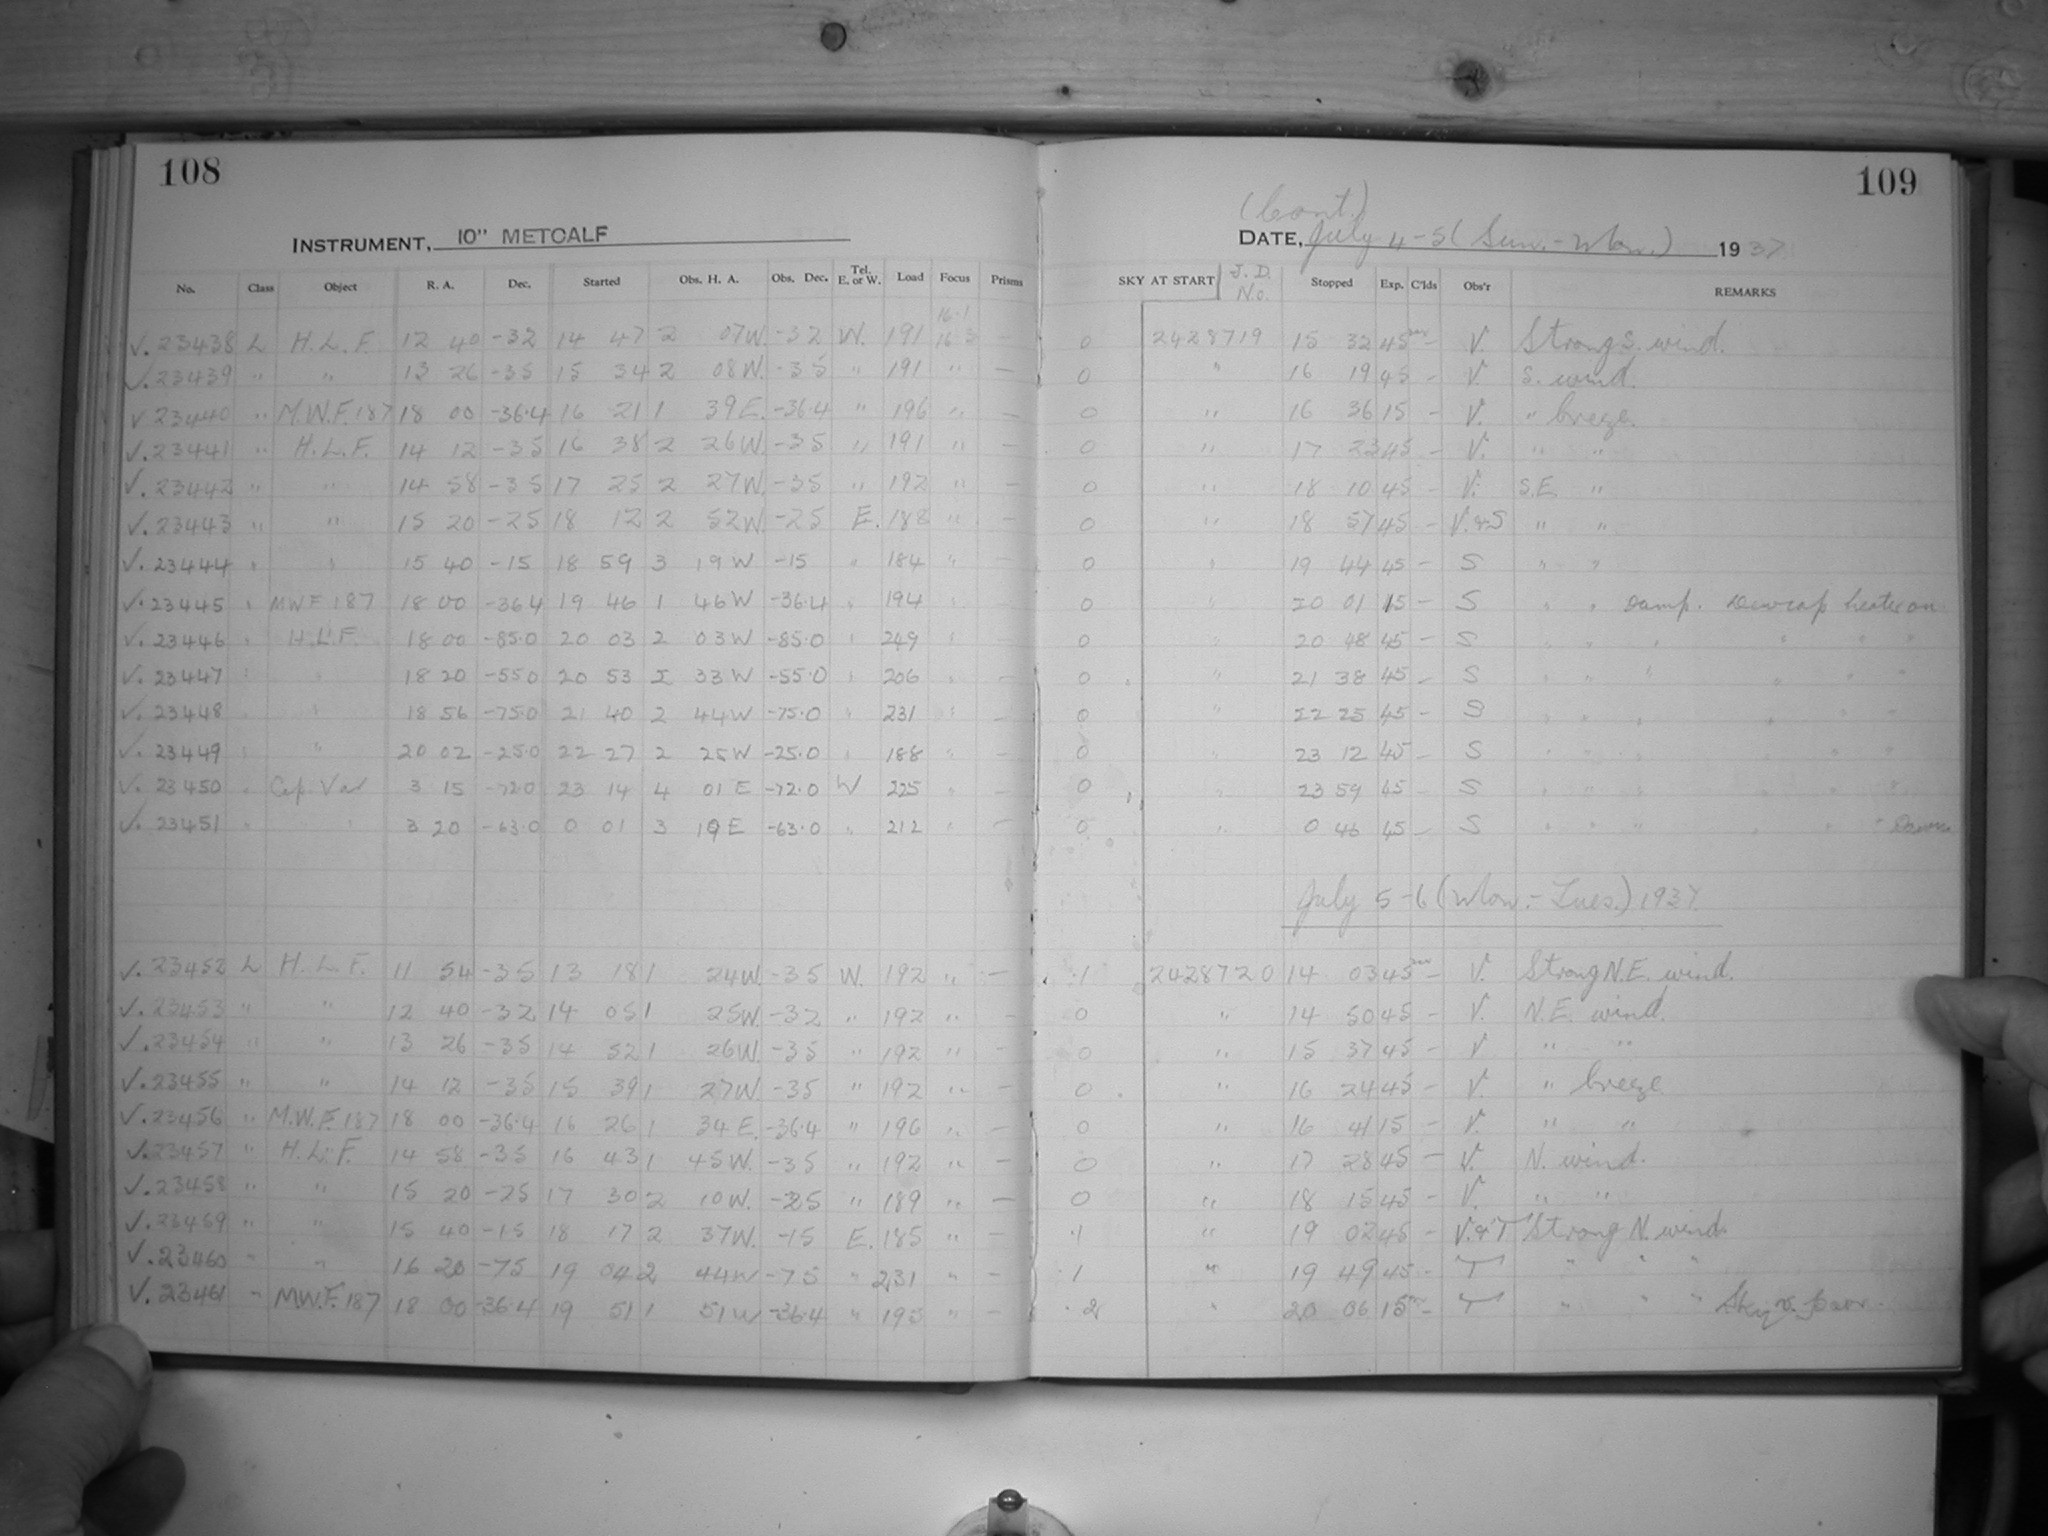 108
INSTRUMENT, 10" METCALF
No. Class Object R. A. Dec. Started Obs. H. A. Obs. Dec. Tel. E. or W. Load Focus Prisms
16.1
V. 23438 L H.L.F. 12 40 -32 14 47 2 07W. -32 W. 191 16.3 —
V. 23439 " " 13 26 -35 15 34 2 08W. -35 " 191 " —
V 23440 " M.W.F. 187 18 00 -36.4 16 21 1 39E. -36.4 " 196 " —
V. 23441 " H.L.F. 14 12 -35 16 38 2 26W. -35 " 191 " —
V. 23442 " " 14 58 -35 17 25 2 27W. -35 " 192 " —
V. 23443 " " 15 20 -25 18 12 2 52W. -25 E. 188 " —
V. 23444 " " 15 40 -15 18 59 3 19W -15 " 184 " —
V. 23445 " MWF 187 18 00 -36.4 19 46 1 46W -36.4 " 194 " —
V. 23446 " H.L.F. 18 00 -85.0 20 03 2 03W -85.0 " 249 " —
V. 23447 " " 18 20 -55.0 20 53 2 33W -55.0 " 206 " —
V. 23448 " " 18 56 -75.0 21 40 2 44W -75.0 " 231 " —
V. 23449 " " 20 02 -25.0 22 27 2 25W -25.0 " 188 " —
V. 23450 " Cep. Var 3 15 -72.0 23 14 4 01E -72.0 W 225 " —
V. 23451 " " 3 20 -63.0 0 01 3 19E -63.0 " 212 " —
V. 23452 L H.L.F. 11 54 -35 13 18 1 24W. -35 W. 192 " —
V. 23453 " " 12 40 -32 14 05 1 25W. -32 " 192 " —
V. 23454 " " 13 26 -35 14 52 1 26W. -35 " 192 " —
V. 23455 " " 14 12 -35 15 39 1 27W. -35 " 192 " —
V. 23456 " M.W.F. 187 18 00 -36.4 16 26 1 34E. -36.4 " 196 " —
V. 23457 " H.L.F. 14 58 -35 16 43 1 45W. -35 " 192 " —
V. 23458 " " 15 20 -25 17 30 2 10W. -25 " 189 " —
V. 23459 " " 15 40 -15 18 17 2 37W. -15 E. 185 " —
V. 23460 " " 16 20 -75 19 04 2 44W -75 " 231 " —
V. 23461 " MW.F. 187 18 00 -36.4 19 51 1 51W -36.4 " 195 " —
109
(Cont.)
DATE, July 4-5 (Sun.-Mon.) 1937
SKY AT START J. D. No. Stopped Exp. C'lds Obs'r REMARKS
0 2428719 15 32 45 — V. Strong S. wind.
0 " 16 19 45 — V. S. wind.
0 " 16 36 15 — V. " breeze.
0 " 17 23 45 — V. " "
0 " 18 10 45 — V. S.E. "
0 " 18 57 45 — V.&S " "
0 " 19 44 45 — S " "
0 " 20 01 15 — S " " Damp. Dewcap heater on
0 " 20 48 45 — S " " " " " "
0 " 21 38 45 — S " " " " " "
0 " 22 25 45 — S " " " " " "
0 " 23 12 45 — S " " " " " "
0 " 23 59 45 — S " " " " " "
0 " 0 46 45 — S " " " " " " Dawn
July 5-6 (Mon.-Tues.) 1937.
.1 2428720 14 03 45 — V. Strong N.E. wind.
0 " 14 50 45 — V. N.E. wind.
0 " 15 37 45 — V " "
0 " 16 24 45 — V. " breeze
0 " 16 41 15 — V. " "
0 " 17 28 45 — V. N. wind.
0 " 18 15 45 — V. " "
.1 " 19 02 45 — V.&T Strong N. wind.
.1 " 19 49 45 — T " " "
.2 " 20 06 15 — T " " " Sky v. poor.